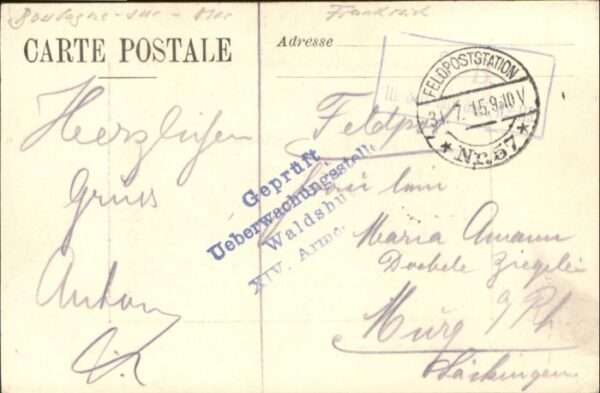 Boulogne-sur-Mer Frankreich
CARTE POSTALE
Adresse
Herzlichen
Gruss
Anton
Feldpost
FELDPOSTSTATION
31.7.15.9-10V
Nr.57
Geprüft
Ueberwachungsstelle
Waldshu
XIV. Arme
Fräulein
Maria Amann
Dobele Ziegelei
Murg a/Rh
Säckingen